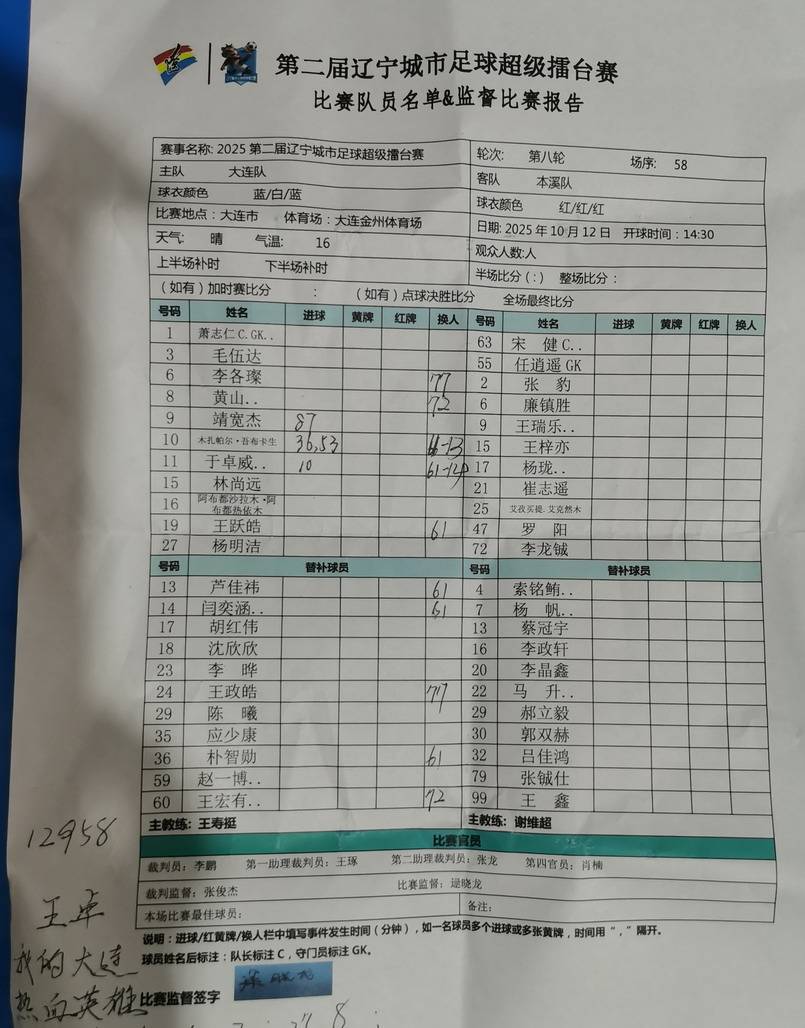 第二届辽宁城市足球超级擂台赛
比赛队员名单&监督比赛报告
赛事名称: 2025 第二届辽宁城市足球超级擂台赛 轮次: 第八轮 场序: 58
主队 大连队 客队 本溪队
球衣颜色 蓝/白/蓝 球衣颜色 红/红/红
比赛地点：大连市 体育场：大连金州体育场 日期: 2025 年 10 月 12 日 开球时间：14:30
天气: 晴 气温: 16 观众人数:人
上半场补时 下半场补时 半场比分 ( : ) 整场比分 :
（如有）加时赛比分 : （如有）点球决胜比分 全场最终比分
号码 姓名 进球 黄牌 红牌 换人 号码 姓名 进球 黄牌 红牌 换人
1 萧志仁 C.GK.. 63 宋 健 C..
3 毛伍达 55 任逍遥 GK
6 李各璨 77 2 张 豹
8 黄山.. 72 6 廉镇胜
9 靖宽杰 87 9 王瑞乐..
10 木扎帕尔·吾布卡生 36,53 61-13 15 王梓亦
11 于卓威.. 10 61-14 17 杨珑..
15 林尚远 21 崔志遥
16 阿布都沙拉木·阿布都热依木 25 艾孜买提.艾克然木
19 王跃皓 61 47 罗 阳
27 杨明洁 72 李龙铖
号码 替补球员 号码 替补球员
13 芦佳祎 61 4 索铭鲔..
14 闫奕涵.. 61 7 杨 帆..
17 胡红伟 13 蔡冠宇
18 沈欣欣 16 李政轩
23 李 晔 20 李晶鑫
24 王政皓 77 22 马 升..
29 陈 曦 29 郝立毅
35 应少康 30 郭双赫
36 朴智勋 61 32 吕佳鸿
59 赵一博.. 79 张铖仕
60 王宏有.. 72 99 王 鑫
主教练: 王寿挺 主教练: 谢维超
比赛官员
裁判员：李鹏 第一助理裁判员：王琢 第二助理裁判员：张龙 第四官员：肖楠
裁判监督：张俊杰 比赛监督：逯晓龙
本场比赛最佳球员： 备注:
说明：进球/红黄牌/换人栏中填写事件发生时间（分钟），如一名球员多个进球或多张黄牌，时间用“，”隔开。
球员姓名后标注：队长标注 C，守门员标注 GK。
比赛监督签字
12958
王卓
我的大连
热血英雄